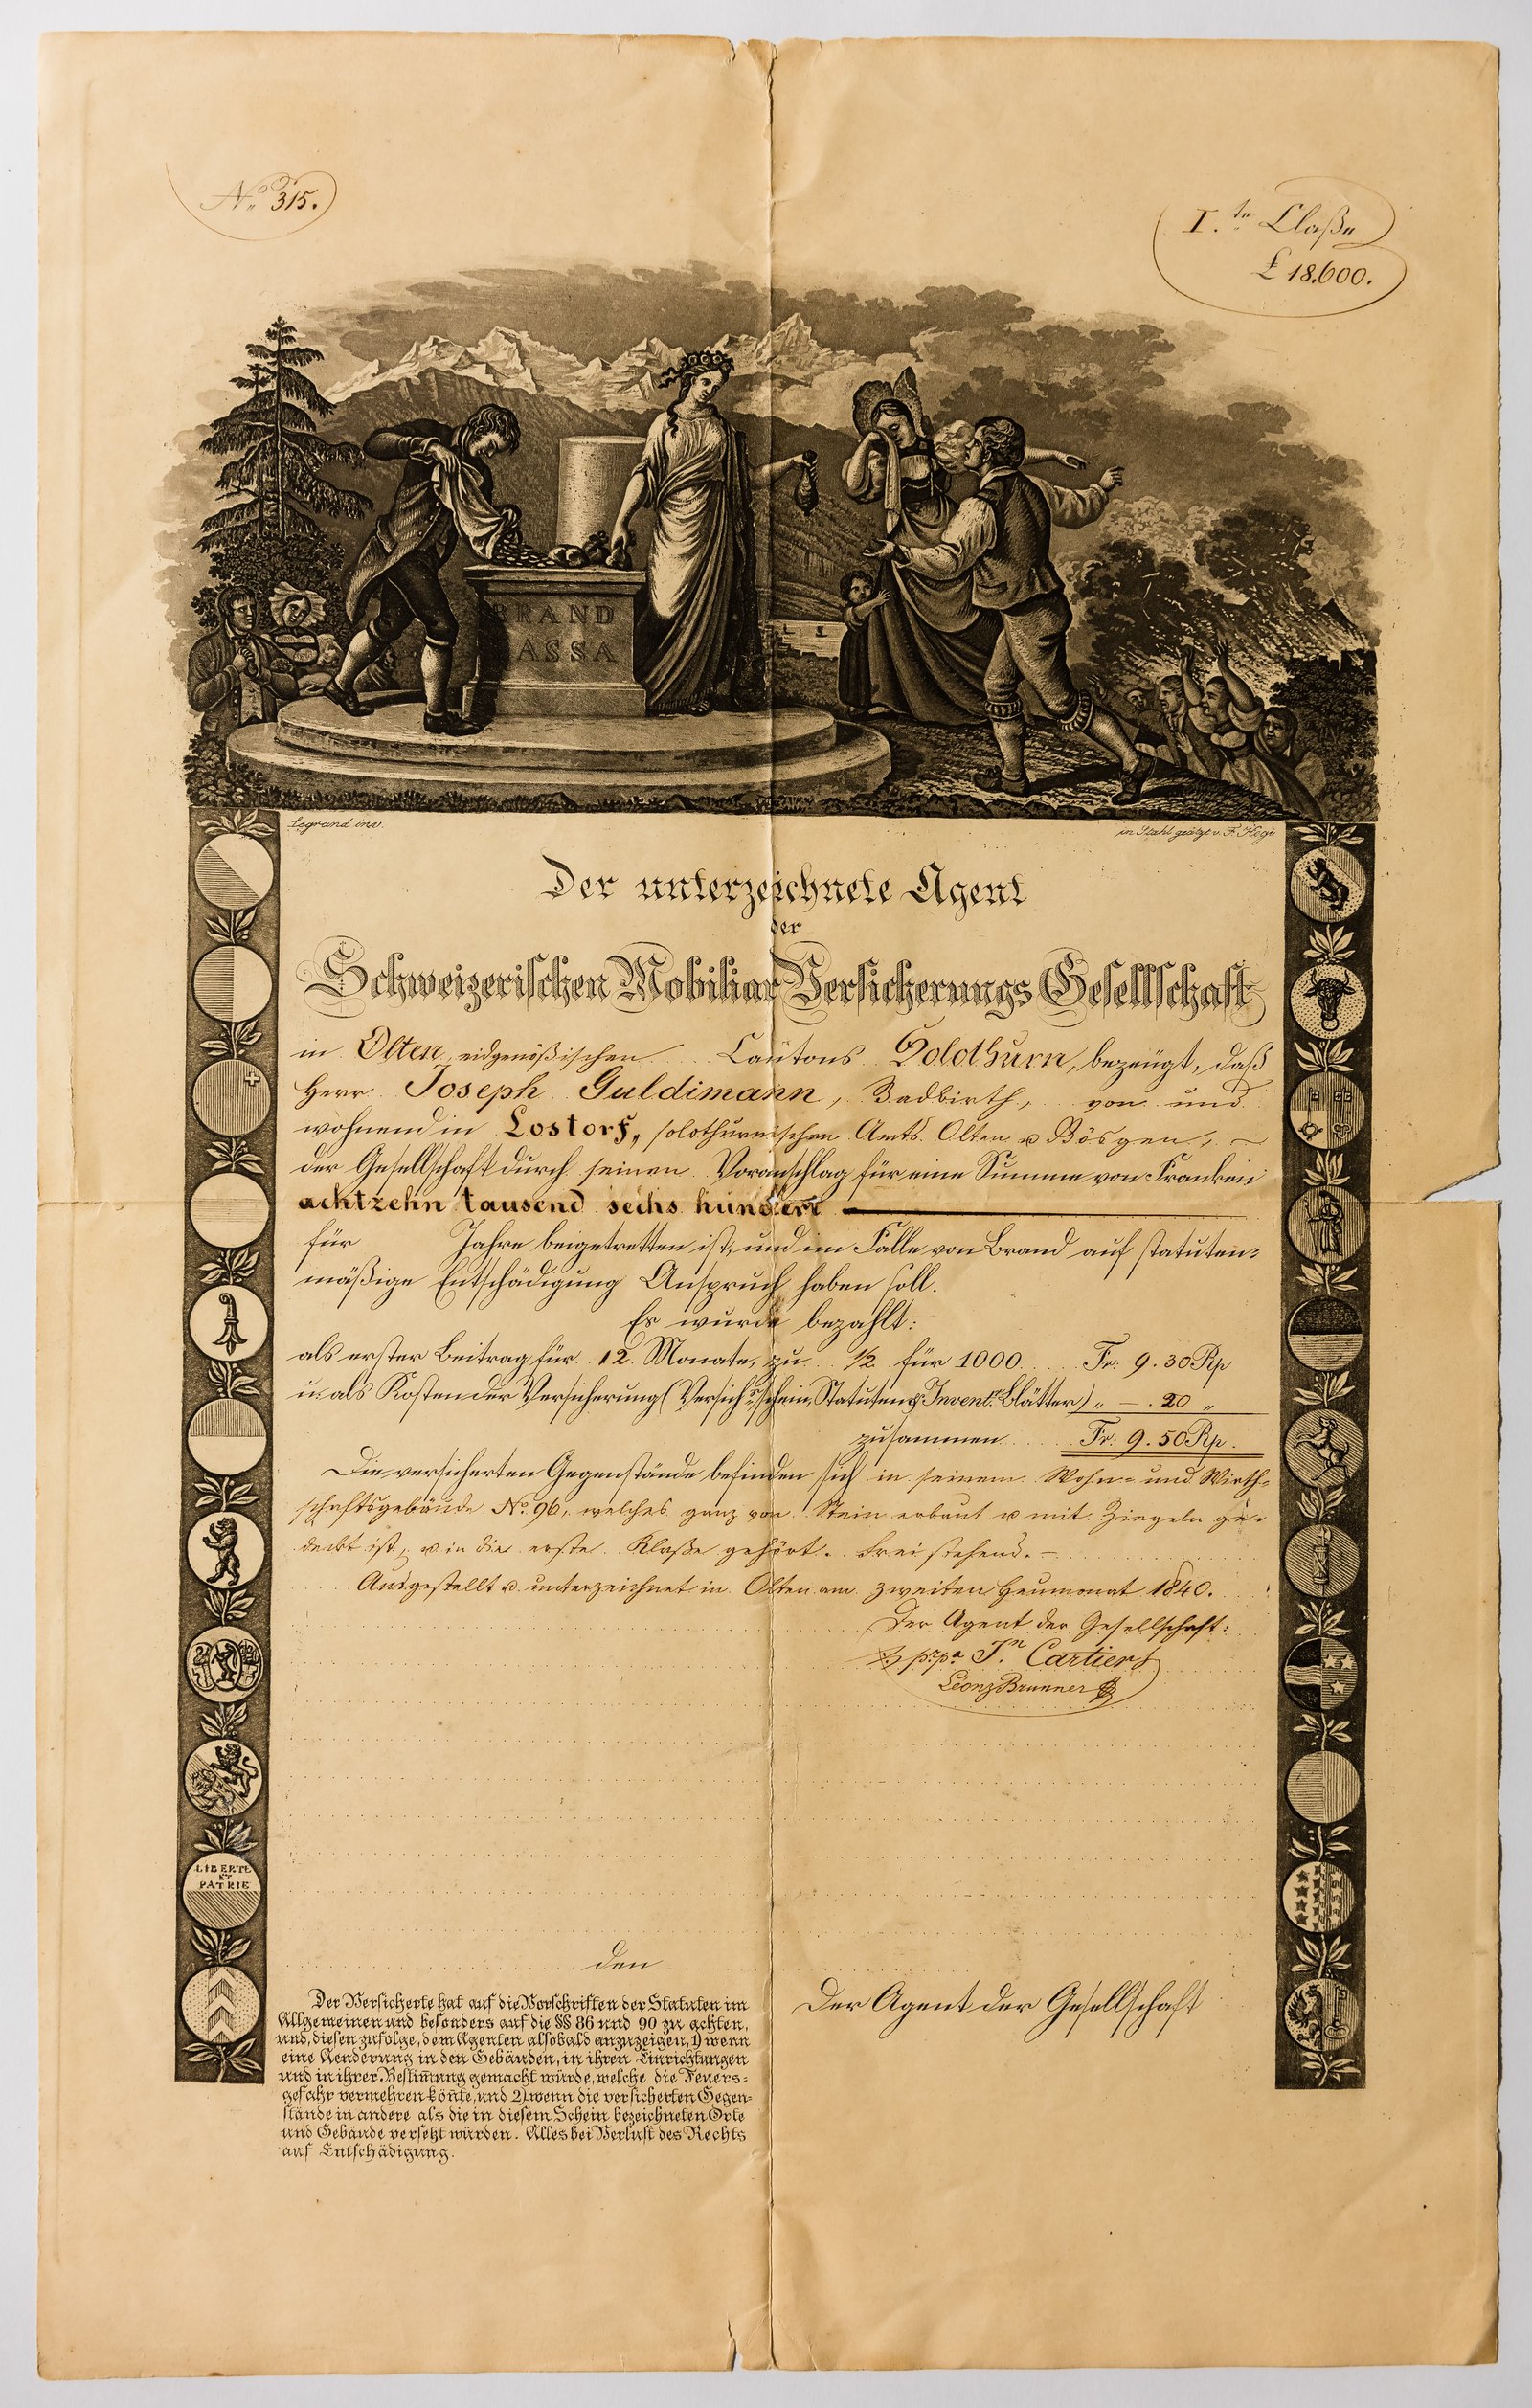 No. 315.
I.te Claße
£ 18.600.
BRAND
ASSA
Legrand inv.
in Stahl geätzt v. F. Hegi
Der unterzeichnete Agent
der
Schweizerischen Mobiliar Versicherungs Gesellschaft
in Olten, eidgenößischen Cantons Solothurn, bezeugt, daß
Herr Joseph Guldimann, Badwirth, von und
wohnend in Lostorf, solothurnischen Amts Olten u Gösgen,
der Gesellschaft durch seinen Voranschlag für eine Summe von Franken
achtzehn tausend sechs hundert
für Jahre beigetretten ist, und im Falle von Brand auf statuten=
mäßige Entschädigung Anspruch haben soll.
Es wurde bezahlt:
als erster Beitrag für 12 Monate, zu 1/2 für 1000 Fr: 9.30 Rp
u. als Kosten der Versicherung (Versich.schein, Statuten & Invent. Blätter) „ — .20 „
zusammen Fr: 9.50 Rp.
Die versicherten Gegenstände befinden sich in seinem Wohn- und Wirth=
schaftsgebäude No. 96, welches ganz von Stein erbaut u mit Ziegeln ge=
deckt ist, u in die erste Klaße gehört. Freistehend. —
Ausgestellt u unterzeichnet in Olten am zweiten Heumonat 1840.
Der Agent der Gesellschaft:
pr pa Jn Cartier
Leonz Brunner
LIBERTE
ET
PATRIE
den
Der Agent der Gesellschaft
Der Versicherte hat auf die Vorschriften der Statuten im
Allgemeinen und besonders auf die §§ 86 und 90 zu achten,
und, diesen zufolge, dem Agenten alsobald anzuzeigen, 1) wenn
eine Aenderung in den Gebäuden, in ihren Einrichtungen
und in ihrer Bestim̄ung gemacht würde, welche die Feuers=
gefahr vermehren kön̄te, und 2) wenn die versicherten Gegen=
stände in andere als die in diesem Schein bezeichneten Orte
und Gebäude versetzt würden. Alles bei Verlust des Rechts
auf Entschädigung.